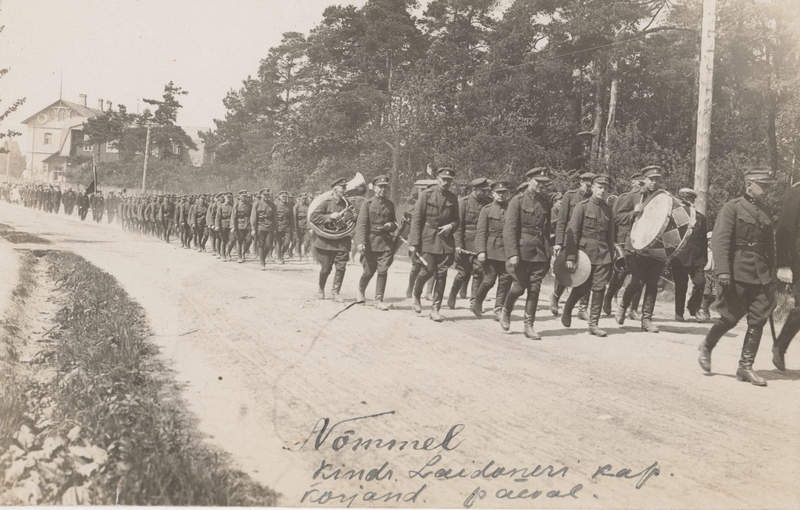 Nõmmel
kindr. Laidoneri kap.
korjand. päeval.